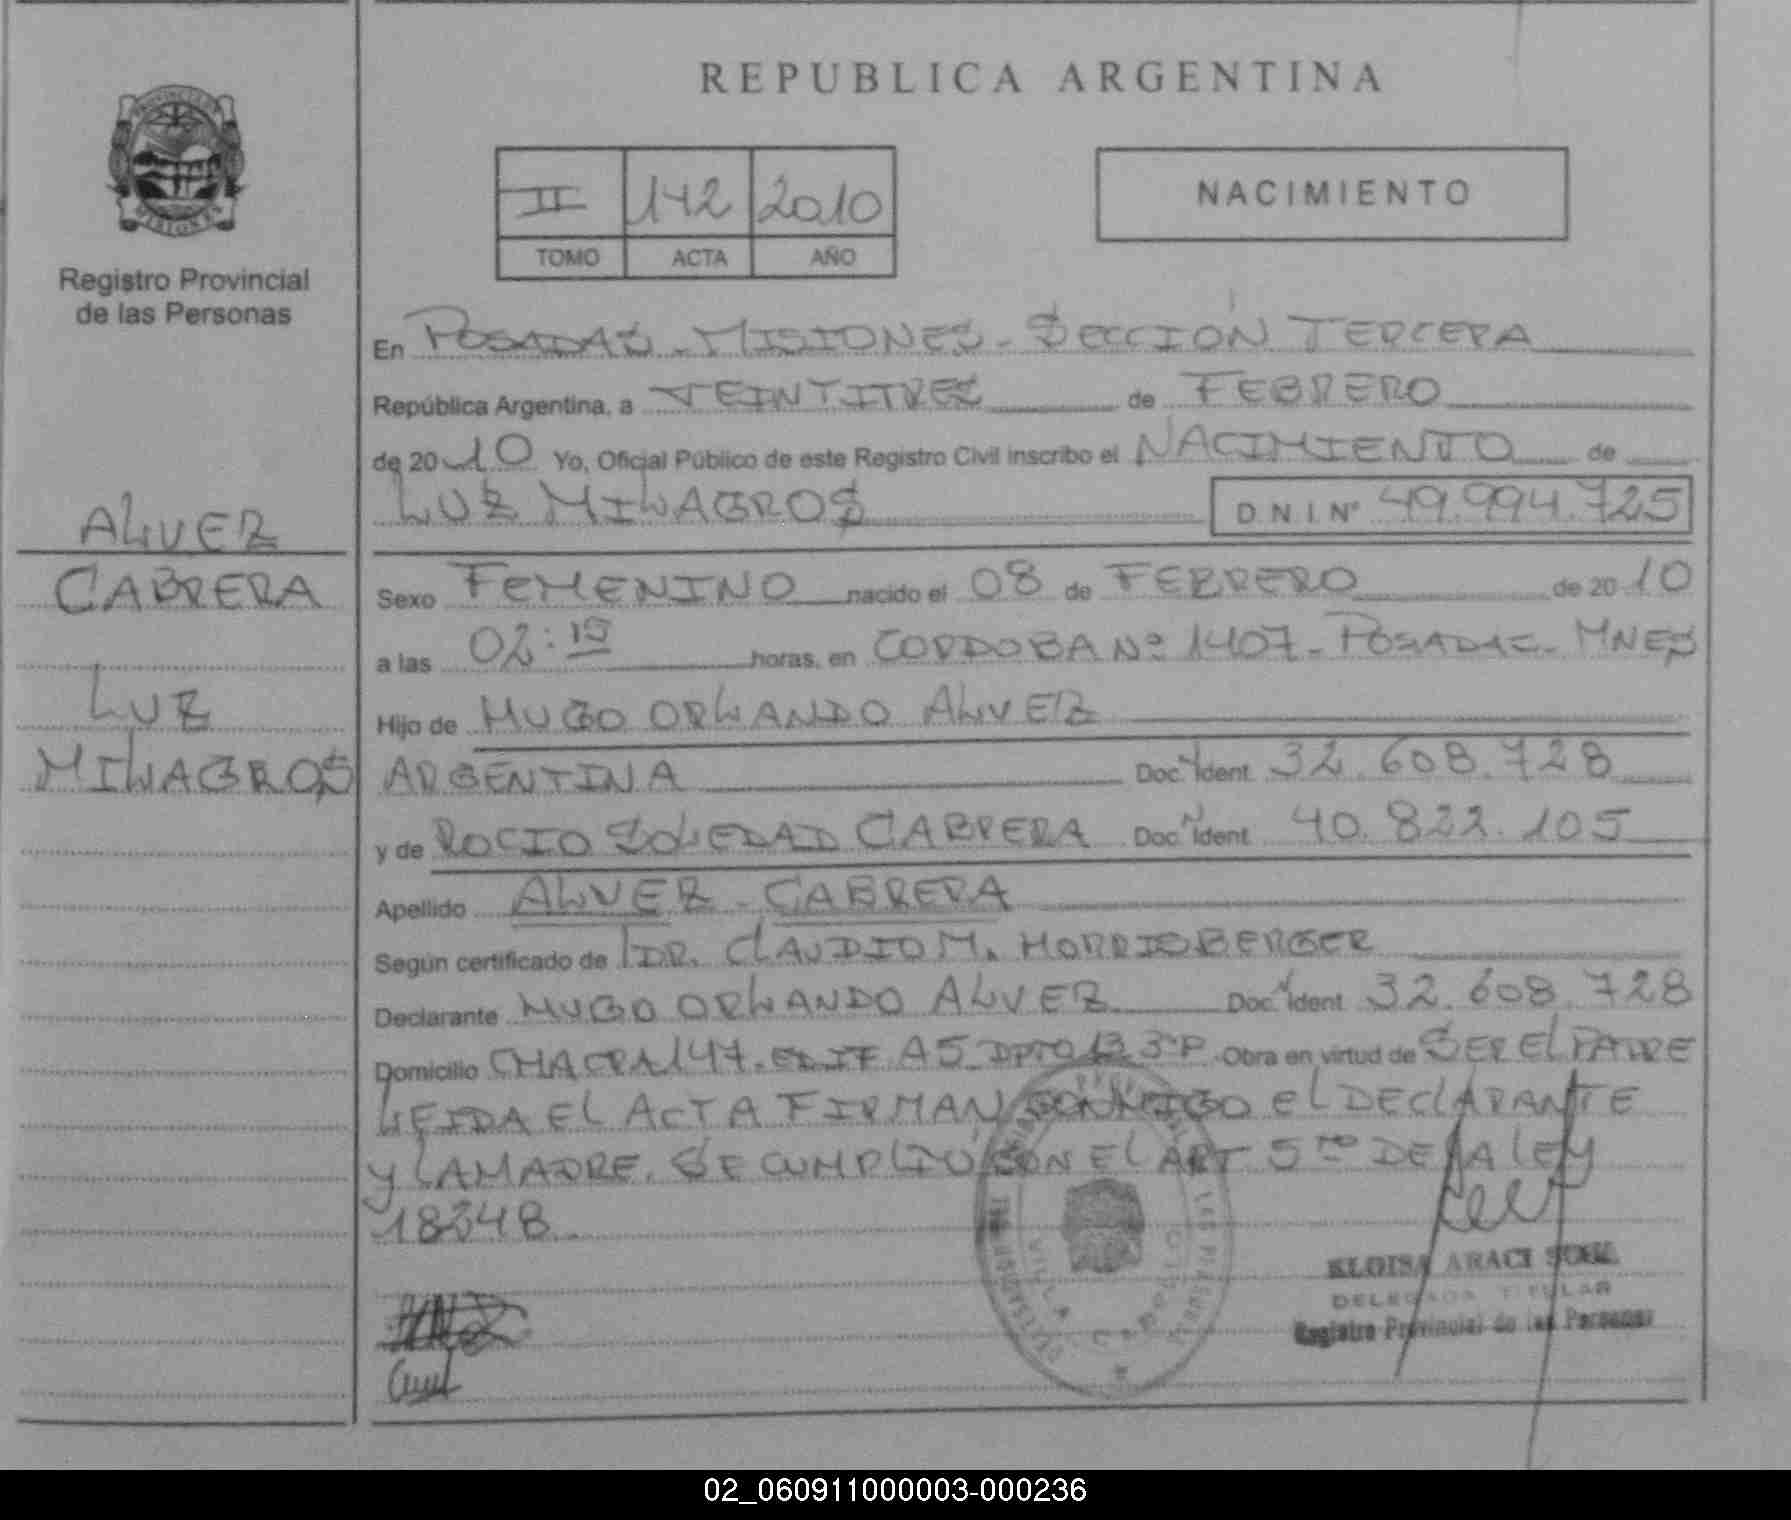 REPUBLICA ARGENTINA
PROVINCIA DE
MISIONES
Registro Provincial
de las Personas
II 142 2010
TOMO ACTA AÑO
NACIMIENTO
En POSADAS - MISIONES - SECCIÓN TERCERA
República Argentina, a VEINTITRES de FEBRERO
de 20 10 Yo, Oficial Público de este Registro Civil inscribo el NACIMIENTO de
LUZ MILAGROS DNI Nº 49.994.725
ALVEZ
CABRERA
LUZ
MILAGROS
Sexo FEMENINO nacido el 08 de FEBRERO de 20 10
a las 02:15 horas, en CORDOBA Nº 1407 - POSADAS - MNES
Hijo de HUGO ORLANDO ALVEZ
ARGENTINA Doc. Ident. 32.608.728
y de ROCIO SOLEDAD CABRERA Doc. Ident. 40.822.105
Apellido ALVEZ - CABRERA
Según certificado de DR. CLAUDIO M. HORRISBERGER
Declarante HUGO ORLANDO ALVEZ Doc. Ident. 32.608.728
Domicilio CHACRA 147 - EDIF A5 DPTO 13 3ºP Obra en virtud de SER EL PADRE
LEIDA EL ACTA FIRMAN CONMIGO el DECLARANTE
y LA MADRE. SE CUMPLIÓ CON EL ART 5to DE LA LEY
18248
VILLA
LAS PERSONAS
ELOISA ARACI
DELEGADA TITULAR
Registro Provincial de las Personas
02_060911000003-000236